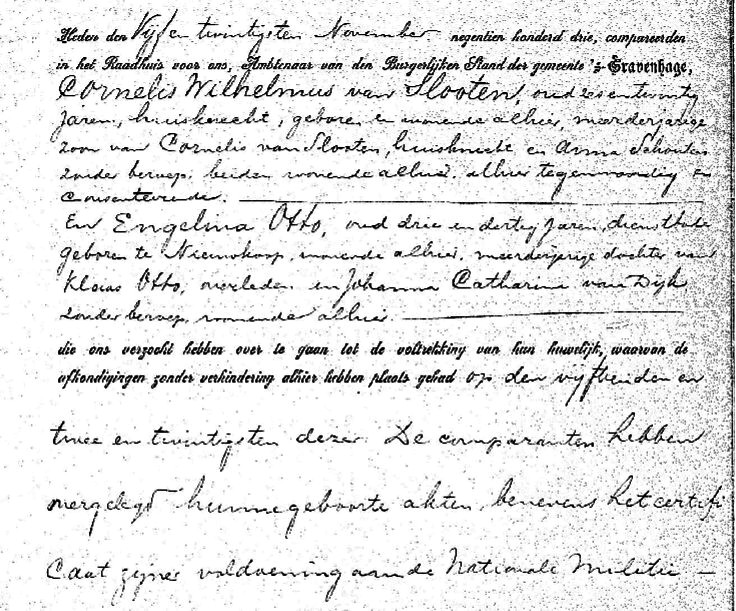 Heden den Vijf en twintigsten November negentien honderd drie, compareerden
in het Raadhuis voor ons, Ambtenaar van den Burgerlijken Stand der gemeente 's-Gravenhage,
Cornelis Wilhelmus van Slooten, oud zes en twintig
jaren, huisknecht, geboren en wonende alhier, meerderjarige
zoon van Cornelis van Slooten, huisknecht en Anna Schouten
zonder beroep, beiden wonende alhier, alhier tegenwoordig en
consenteerende.
En Engelina Otto, oud drie en dertig jaren, dienstbode
geboren te Nieuwkoop, wonende alhier, meerderjarige dochter van
Klaas Otto, overleden en Johanna Catharina van Dijk
zonder beroep, wonende alhier.
die ons verzocht hebben over te gaan tot de voltrekking van hun huwelijk, waarvan de
afkondigingen zonder verhindering alhier hebben plaats gehad op den vijftienden en
twee en twintigsten dezer. De comparanten hebben
overgelegd hunne geboorte akten, benevens het certifi
caat zijner voldoening aan de Nationale Militie —